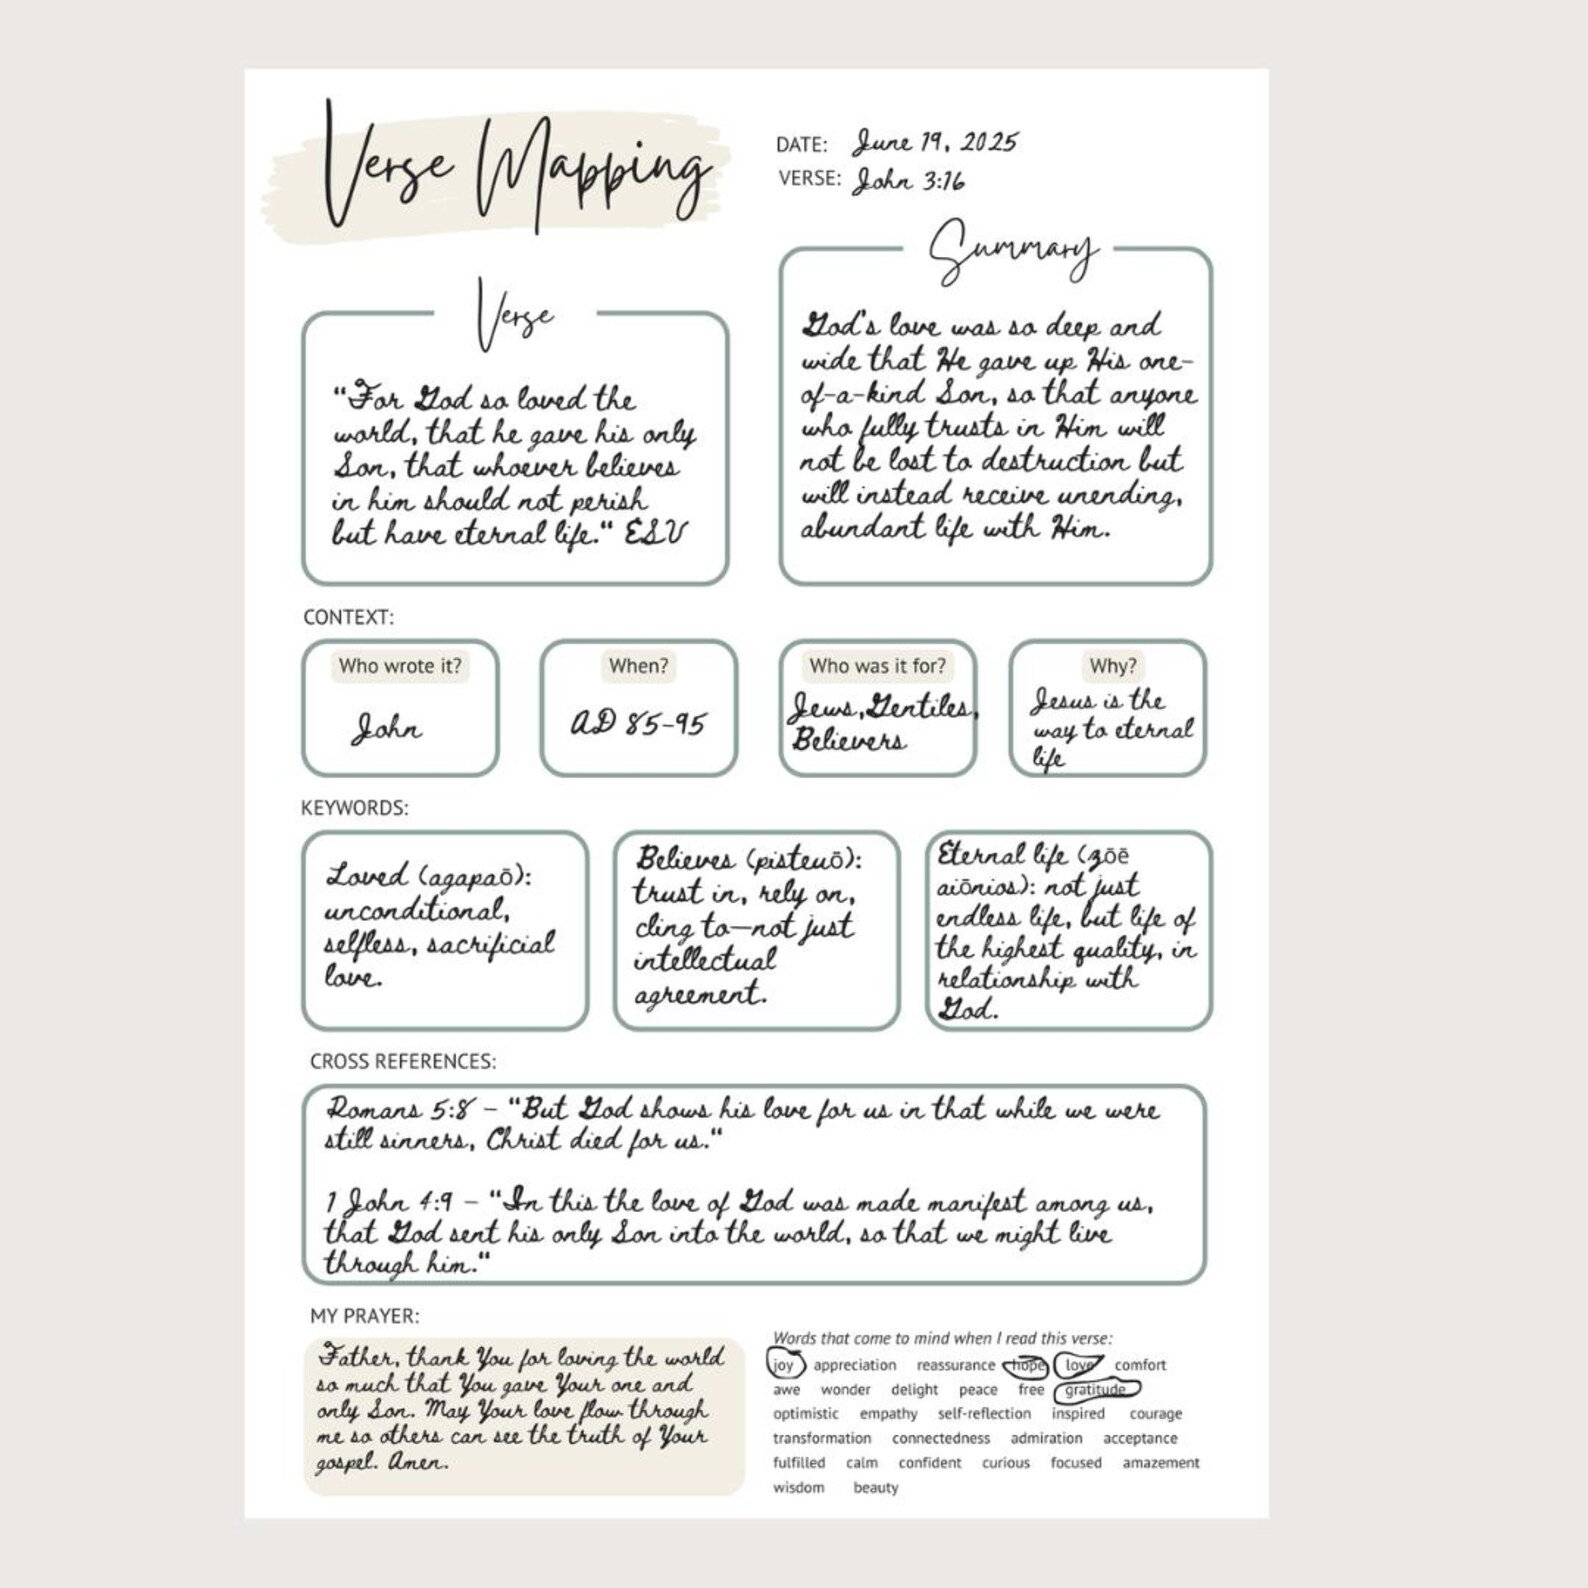 Verse Mapping
DATE: June 19, 2025
VERSE: John 3:16
Verse
"For God so loved the
world, that he gave his only
Son, that whoever believes
in him should not perish
but have eternal life." ESV
Summary
God's love was so deep and
wide that He gave up His one-
of-a-kind Son, so that anyone
who fully trusts in Him will
not be lost to destruction but
will instead receive unending,
abundant life with Him.
CONTEXT:
Who wrote it?
John
When?
AD 85-95
Who was it for?
Jews, Gentiles,
Believers
Why?
Jesus is the
way to eternal
life
KEYWORDS:
Loved (agapaō):
unconditional,
selfless, sacrificial
love.
Believes (pisteuō):
trust in, rely on,
cling to—not just
intellectual
agreement.
Eternal life (zōē
aiōnios): not just
endless life, but life of
the highest quality, in
relationship with
God.
CROSS REFERENCES:
Romans 5:8 - "But God shows his love for us in that while we were
still sinners, Christ died for us."
1 John 4:9 - "In this the love of God was made manifest among us,
that God sent his only Son into the world, so that we might live
through him."
MY PRAYER:
Father, thank You for loving the world
so much that You gave Your one and
only Son. May Your love flow through
me so others can see the truth of Your
gospel. Amen.
Words that come to mind when I read this verse:
joy appreciation reassurance hope love comfort
awe wonder delight peace free gratitude
optimistic empathy self-reflection inspired courage
transformation connectedness admiration acceptance
fulfilled calm confident curious focused amazement
wisdom beauty